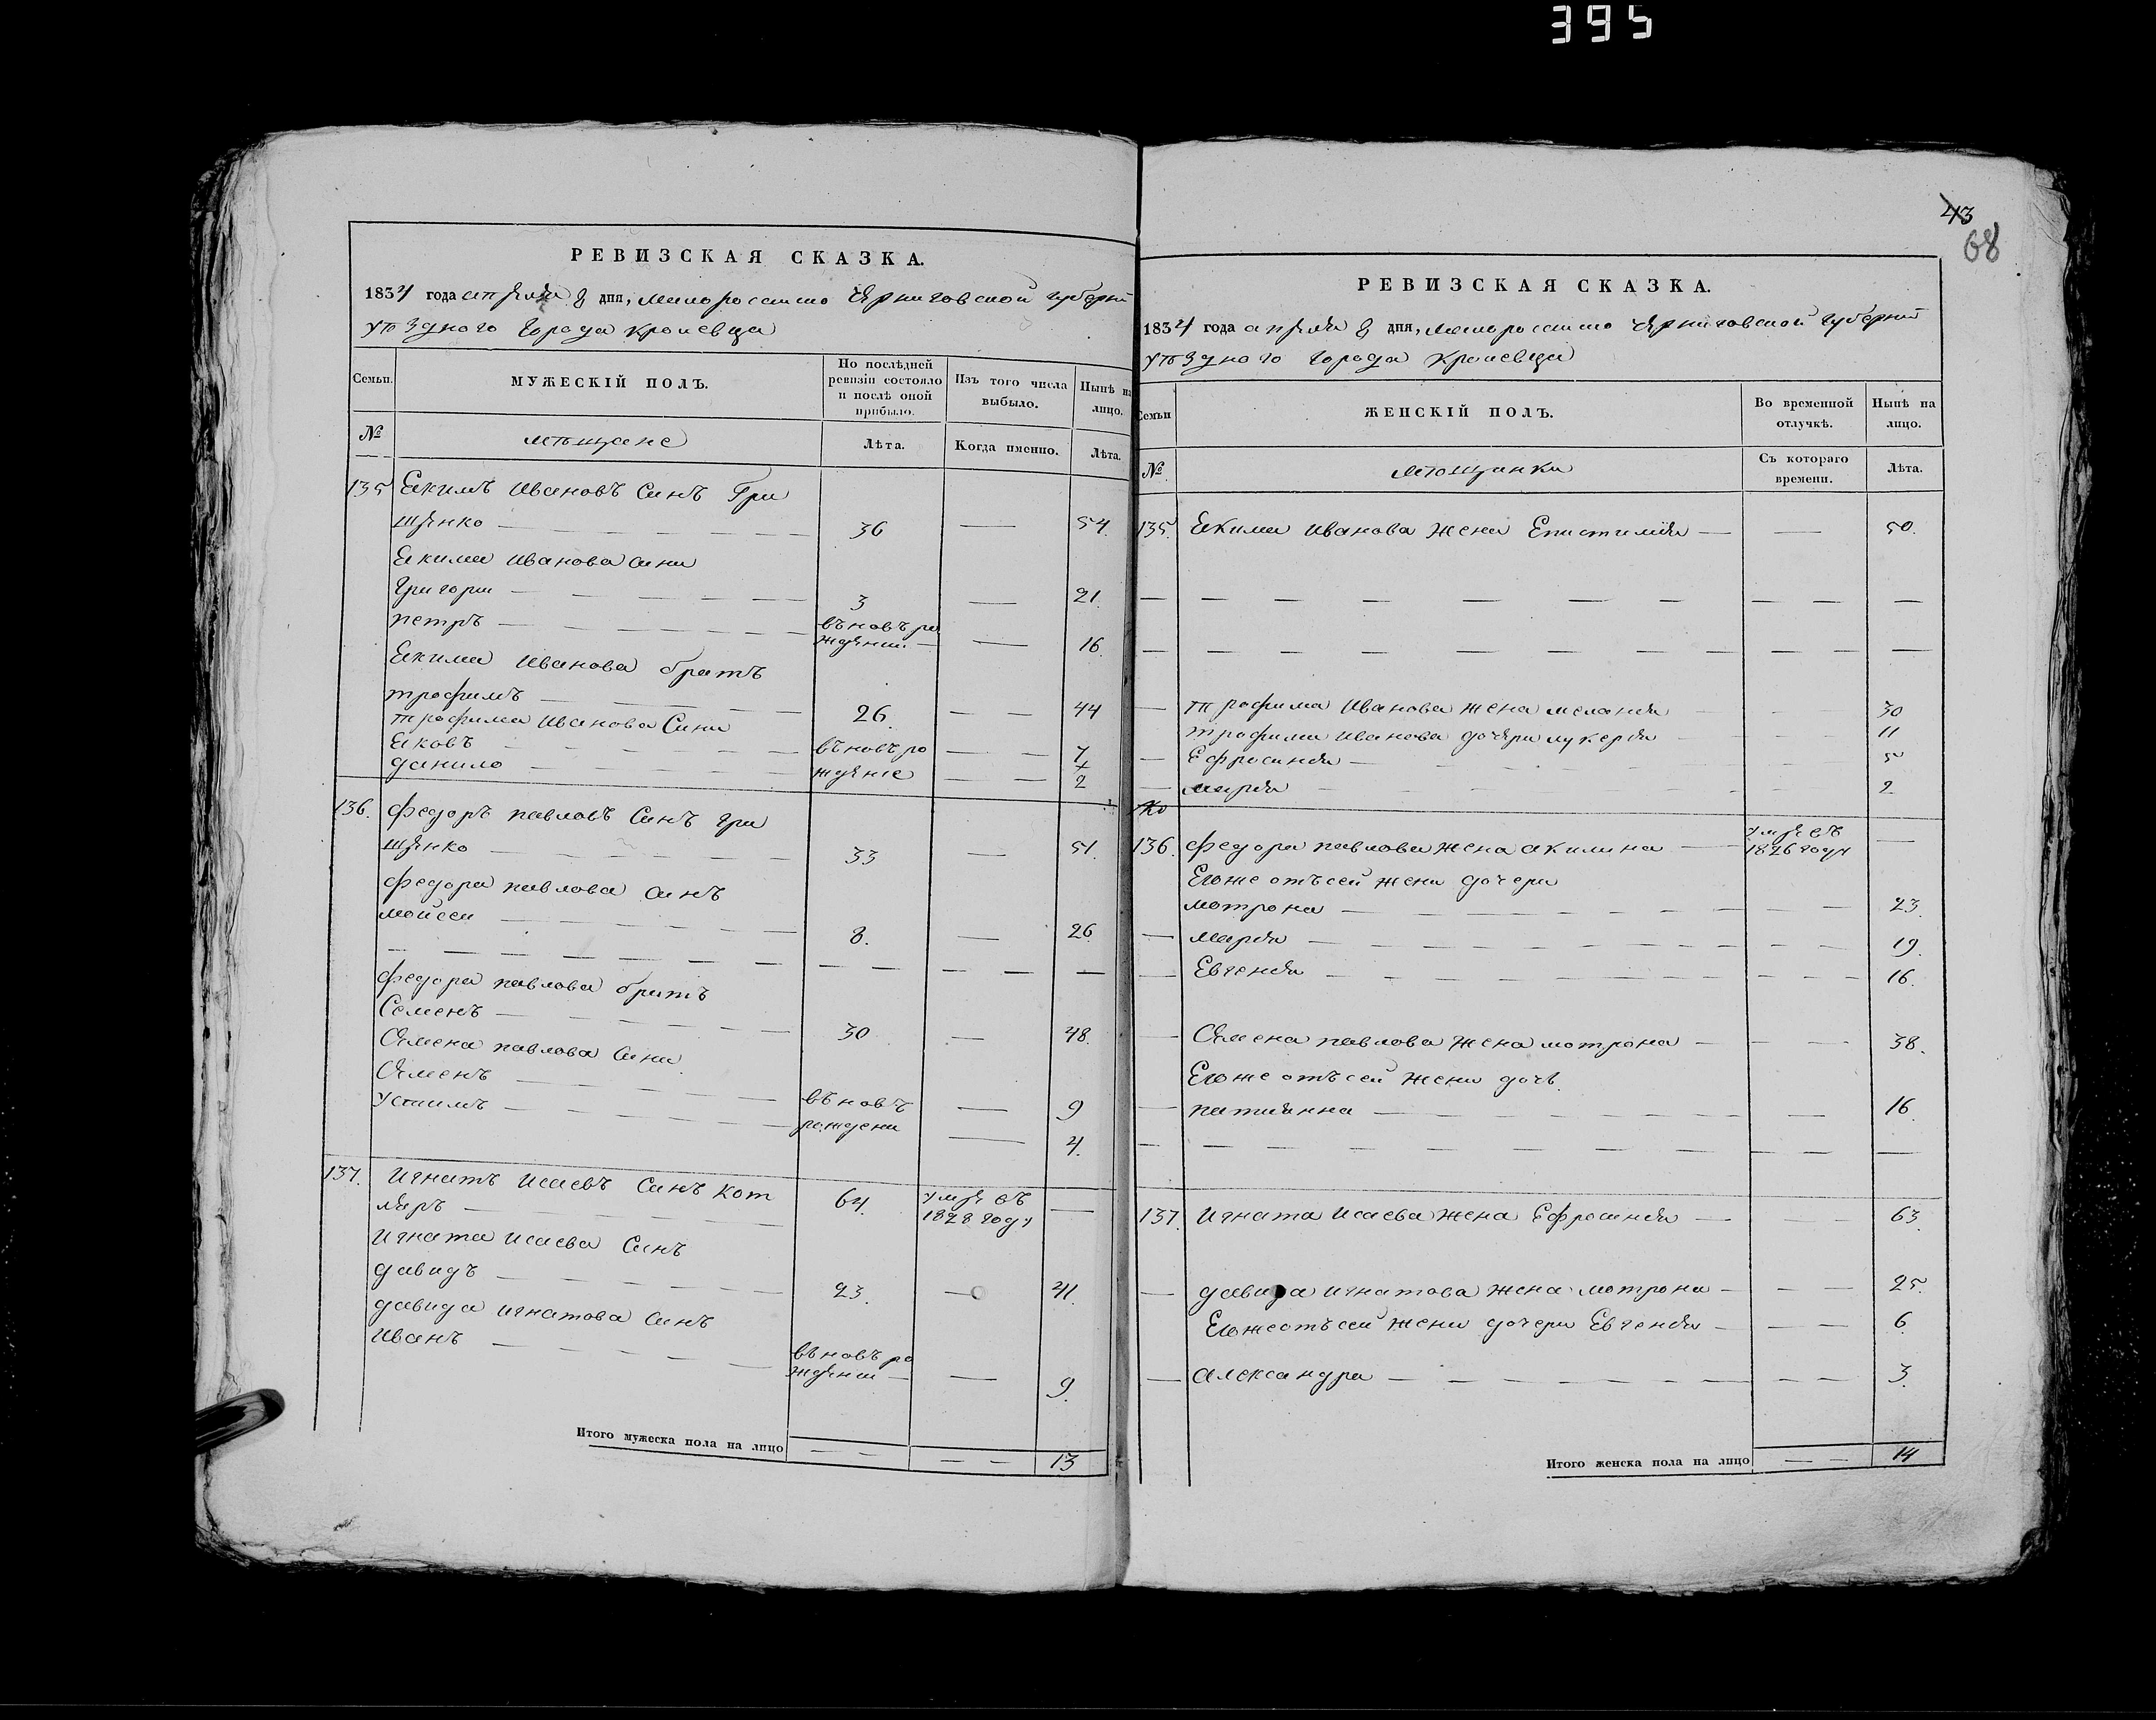 395
43
68
РЕВИЗСКАЯ СКАЗКА.
1834 года апреля 8 дня, малороссииско Черниговской губернѣ
уѣздного города кролевца
Семьи.
МУЖЕСКІЙ ПОЛЪ.
По послѣдней ревизіи состояло и послѣ оной прибыло.
Изъ того числа выбыло.
Нынѣ на лицо.
№
мѣщане
Лѣта.
Когда именно.
Лѣта.
135 Екимъ Ивановъ Синъ Гри
щенко — 36 — 54.
Екима Иванова сини
Григори — 3 — 21.
петръ — въновъ ро ждении — 16.
Екима Иванова братъ
трофимъ — 26. — 44
трофима Иванова Сини
Яковъ — въновъ ро — 7
данило — ждение — 2
136. федоръ павловъ Синъ гри
щенко — 33 — 51.
федора павлова синъ
мойсеи — 8. — 26.
федора павлова братъ
Семенъ — 30 — 48.
Семена павлова Сини
Семенъ — въновъ — 9
устимъ — рождени — 4.
137. Игнатъ Исаевъ Синъ Кот
ляръ — 64. умре въ 1828 году —
Игната Исаева Синъ
давидъ — 23. — 41.
давида игнатова синъ
Иванъ — въновъ ро ждении — 9.
Итого мужеска пола на лицо — 13
РЕВИЗСКАЯ СКАЗКА.
1834 года апреля 8 дня, малороссииско Черниговской губернѣ
уѣздного города Кролевца
Семьи
ЖЕНСКІЙ ПОЛЪ.
Во временной отлучкѣ.
Нынѣ на лицо.
№.
мѣщанки
Съ котораго времени.
Лѣта.
135. Екима Иванова жена Епистимия — 50.
— трофима Иванова жена мелания 30
трофима Иванова дочери лукеря 11
— Ефросиния — 5
— мария 2
136. федора павлова жена акилина — умре въ 1826 году —
Егоже отъ сей жени дочери
мотрона — 23.
— мария — 19.
— Евгения — 16.
— Семена павлова жена мотрона — 38.
Егоже отъ сей жени дочь.
— татианна — 16
137. Игната Исаева жена Ефросиния — 63.
— давида игнатова жена мотрона — 25.
Егоже отъ сей жени дочери Евгения — 6
— александра — 3.
Итого женска пола на лицо — 14